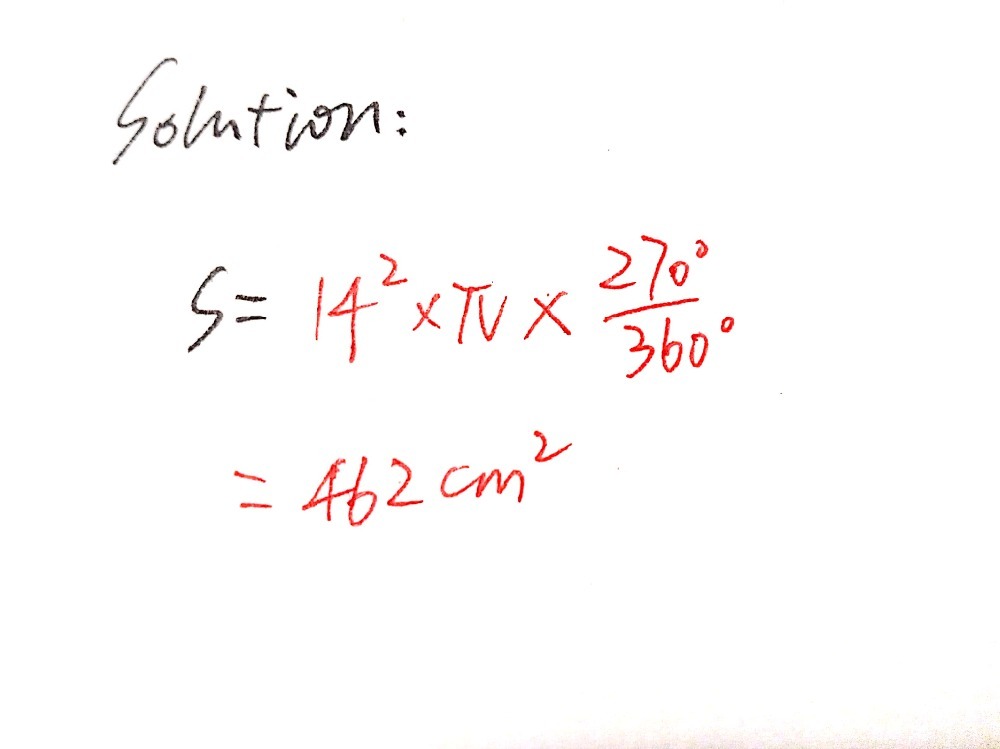 Solution:
S = 14² × π × 270°/360°
= 462 cm²